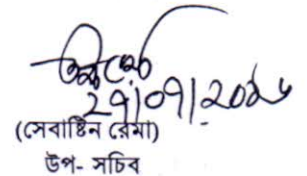 ২৭/০৭/২০১৬
(সেবাষ্টিন রেমা)
উপ- সচিব